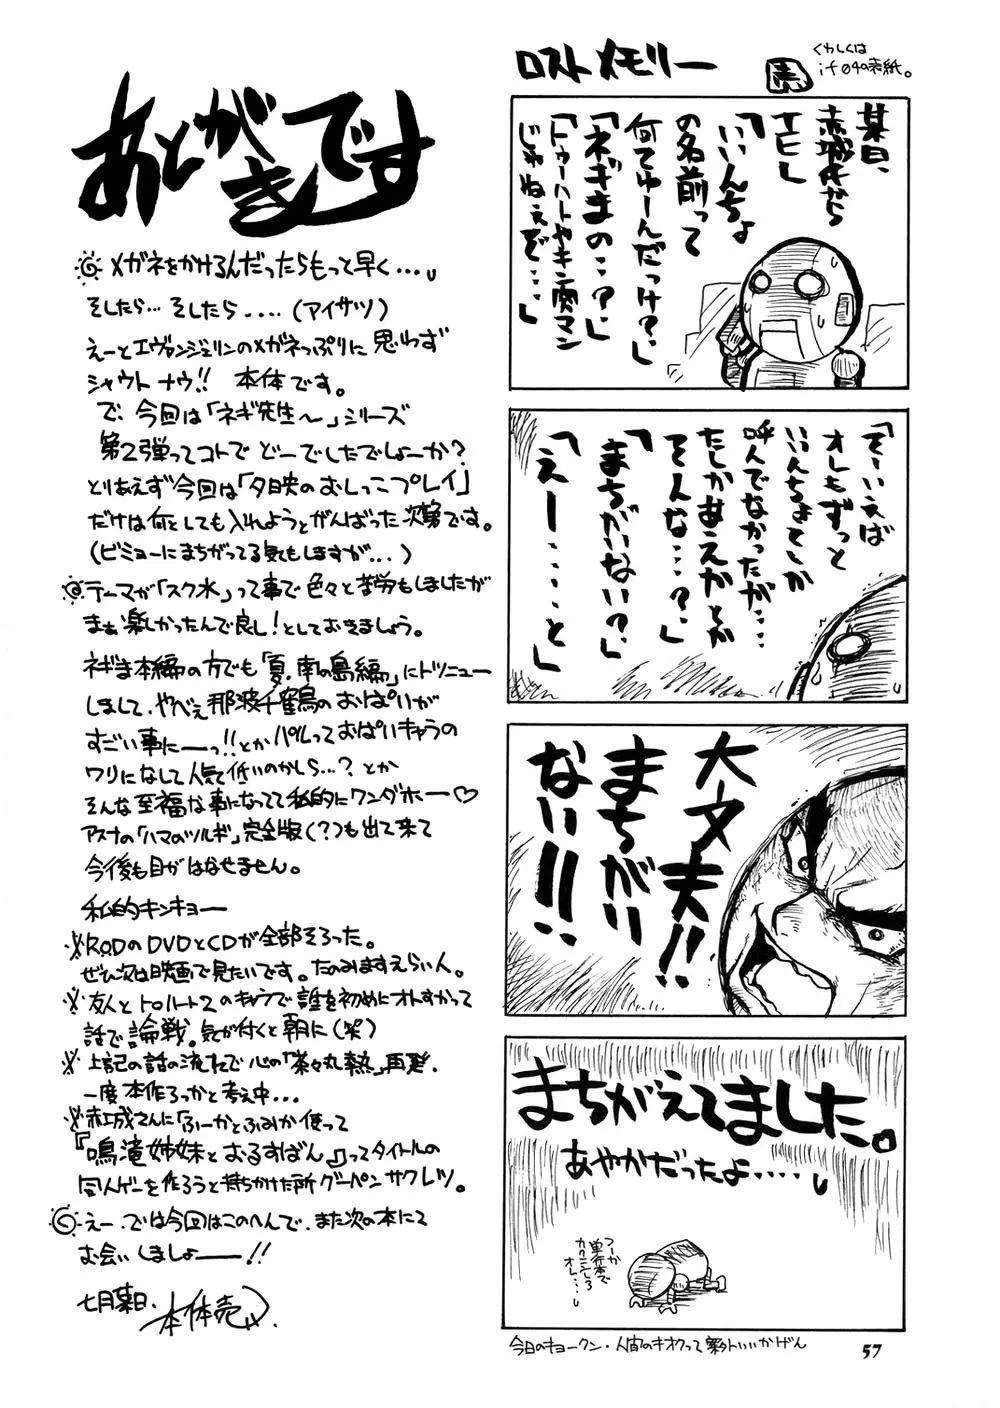 あとがきです
メガネをかけるんだったらもっと早く…。
そしたら…そしたら‥‥(アイサツ)
えーとエヴァンジェリンのメガネっぷりに思わず
シャウトナウ!! 本体です。
で、今回は「ネギ先生〜」シリーズ
第2弾ってコトでどーでしたでしょーか?
とりあえず今回は「夕映のおしっこプレイ」
だけは何としても入れようとがんばった次第です。
(ビミョーにまちがってる気もしますが…)
テーマが「スク水」って事で色々と苦労もしましたが
まぁ楽しかったんで良し!としておきましょう。
ネギま本編の方でも「夏、南の島編」にトツニュー
しまして、やべぇ那波千鶴のおぱいが
すごい事にーーっ!!とかパルっておぱいキャラの
ワリになして人気低いのかしら…?とか
そんな至福な事になってて私的にワンダホー♡
アスナの「ハマのツルギ」完全版(?)も出て来て
今後も目がはなせません。
私的キンキョー
RODのDVDとCDが全部そろった。
ぜひ次は映画で見たいです。たのみますえらい人。
友人とトゥハート2のキャラで誰を初めにオトすかって
話で論戦。気が付くと朝に(笑)
上記の話の流れで心の「茶々丸熱」再発。
一度本作ろっかと考え中…
赤城さんに「ふーかとふみか使って
『鳴滝姉妹とおるすばん』ってタイトルの
同人ゲーを作ろうと持ちかけた所グーパンサクレツ。
えー、では今回はこのへんで、また次の本にて
お会いしましょーー!!
七月某日、本体売
ロストメモリー
くわしくは
if04の表紙。
某日、
赤城氏から
TELし
「いいんちょ
の名前って
何てゆーんだっけ?」
「ネギまの‥?」
「トゥーハートやキン肉マン
じゃねぇぞ…」
「そーいえば
オレもずっと
いいんちょてしか
呼んでなかったが…
たしかあえかとか
そんな…?」
「まちがいない?」
「えー‥‥と」
大丈夫!!
まちがい
ない!!
まちがえてました。
あやかだったよ‥‥。
つーか
単行本で
カクニンしろ
オレ…。
今日のキョークン・人間のキオクって案外いいかげん
57